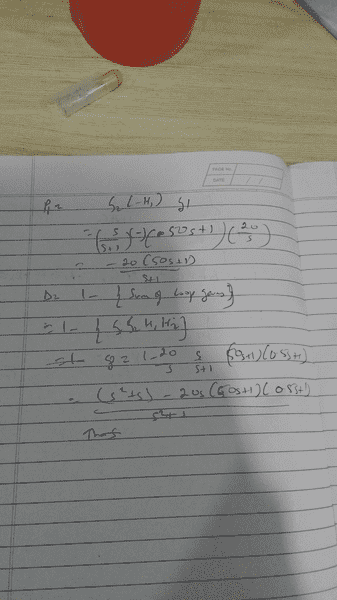 PAGE No.
DATE
P1 = G2 (-H1) G1
= (s/s+1) (-) (50s+1) (20/s)
= -20 (50s+1) / s+1
D = 1 - { Sum of loop gains }
= 1 - { G1 G2 H1 H2 }
= 1 - 20/s s/s+1 (50s+1) (0.5s+1)
= (s²+s) - 20s (50s+1) (0.5s+1) / s²+s
Thus